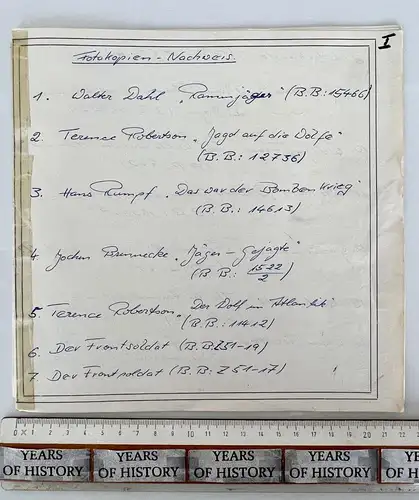 I
Fotokopien - Nachweis.
1. Walter Dahl "Rammjäger" (B.B.: 15466)
2. Terence Robertson "Jagd auf die Wölfe"
(B.B.: 12736)
3. Hans Rumpf "Das war der Bombenkrieg"
(B.B.: 14613)
4. Jochen Brennecke "Jäger - Gejagte"
(B.B.: 1522/2)
5. Terence Robertson "Der Wolf im Atlantik"
(B.B.: 11412)
6. Der Frontsoldat (B.B. Z51-19)
7. Der Frontsoldat (B.B: Z51-17)
0 1 2 3 4 5 6 7 8 9 10 11 12 13 14 15 16 17 18 19 20 21
YEARS OF HISTORY YEARS OF HISTORY YEARS OF HISTORY YEARS OF HISTORY YE OF